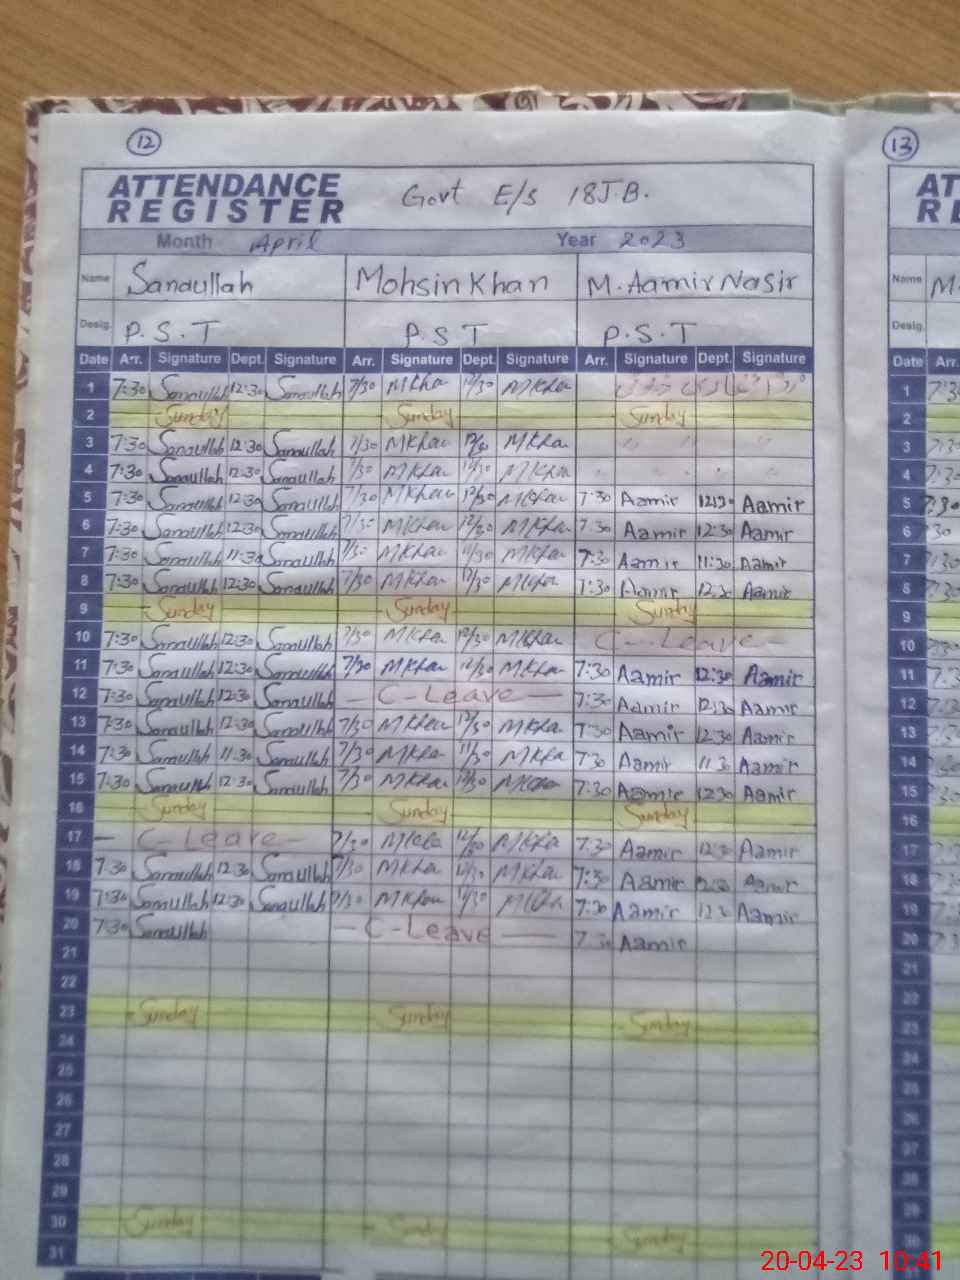 12 13
ATTENDANCE
REGISTER Govt E/S 18 J.B.
Month April Year 2023
Name Sanaullah Mohsin Khan M. Aamir Nasir
Desig. P.S.T P.S.T P.S.T
Date Arr. Signature Dept. Signature Arr. Signature Dept. Signature Arr. Signature Dept. Signature
1 7:30 Sanaullah 12:30 Sanaullah 7/30 MKha 12/30 MKha
2 Sunday Sunday Sunday
3 7:30 Sanaullah 12:30 Sanaullah 7/30 MKhan MKha
4 7:30 Sanaullah 12:30 Sanaullah 7/30 MKha 12/30 MKha
5 7:30 Sanaullah 12:30 Sanaullah 7/30 MKhan 12/30 MKhan 7:30 Aamir 12:30 Aamir
6 7:30 Sanaullah 12:30 Sanaullah 7/30 MKhan 12/30 MKhan 7:30 Aamir 12:30 Aamir
7 7:30 Sanaullah 11:30 Sanaullah 7/30 MKhan 11/30 MKhan 7:30 Aamir 11:30 Aamir
8 7:30 Sanaullah 12:30 Sanaullah 7/30 MKhan 12/30 MKhan 7:30 Aamir 12:30 Aamir
9 Sunday Sunday Sunday
10 7:30 Sanaullah 12:30 Sanaullah 7/30 MKhan 12/30 MKhan C-Leave
11 7:30 Sanaullah 12:30 Sanaullah 7/30 MKhan 12/30 MKhan 7:30 Aamir 12:30 Aamir
12 7:30 Sanaullah 12:30 Sanaullah C-Leave 7:30 Aamir 12:30 Aamir
13 7:30 Sanaullah 12:30 Sanaullah 7/30 MKhan 12/30 MKhan 7:30 Aamir 12:30 Aamir
14 7:30 Sanaullah 11:30 Sanaullah 7/30 MKha 11/30 MKha 7:30 Aamir 11:30 Aamir
15 7:30 Sanaullah 12:30 Sanaullah 7/30 MKhan 12/30 MKhan 7:30 Aamir 12:30 Aamir
16 Sunday Sunday Sunday
17 C-Leave 7/30 MKha 12/30 MKha 7:30 Aamir 12:30 Aamir
18 7:30 Sanaullah 12:30 Sanaullah 7/30 MKha 12/30 MKhan 7:30 Aamir 12:30 Aamir
19 7:30 Sanaullah 12:30 Sanaullah 7/30 MKhan 12/30 MKha 7:30 Aamir Aamir
20 7:30 Sanaullah C-Leave 7:30 Aamir
21
22
23 Sunday Sunday Sunday
24
25
26
27
28
29
30 Sunday Sunday Sunday
31
20-04-23 10:41